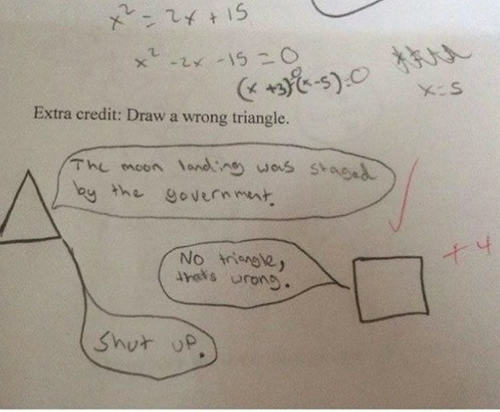 x² = 2x + 15
x² - 2x - 15 = 0
(x + 3)(x - 5) = 0
x = 5
Extra credit: Draw a wrong triangle.
The moon landing was staged
by the government.
+4
No triangle,
that's wrong.
Shut up.